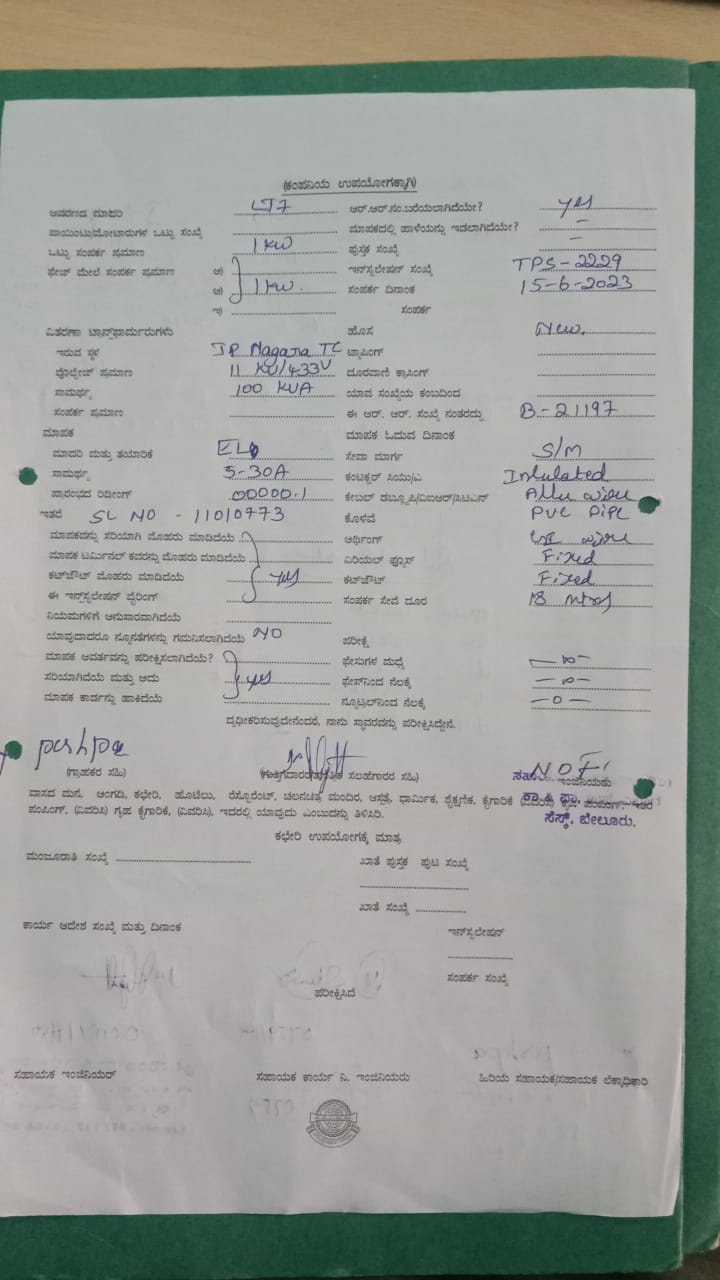 (ಕಂಪನಿಯ ಉಪಯೋಗಕ್ಕಾಗಿ)
ಆವರಣದ ಮಾದರಿ LT7 ಆರ್.ಆರ್.ನಂ.ಬರೆಯಲಾಗಿದೆಯೇ? yes
ಪಾಯಿಂಟು/ಮೋಟಾರುಗಳ ಒಟ್ಟು ಸಂಖ್ಯೆ ಮಾಪಕದಲ್ಲಿ ಹಾಳೆಯನ್ನು ಇಡಲಾಗಿದೆಯೇ? –
ಒಟ್ಟು ಸಂಪರ್ಕ ಪ್ರಮಾಣ 1 KW ಪುಸ್ತಕ ಸಂಖ್ಯೆ –
ಫೇಜ್ ಮೇಲೆ ಸಂಪರ್ಕ ಪ್ರಮಾಣ ಅ) ಇನ್‌ಸ್ಟಲೇಷನ್ ಸಂಖ್ಯೆ TPS-2229
ಆ) 1 KW. ಸಂಪರ್ಕ ದಿನಾಂಕ 15-6-2023
ಇ) ಸಂಪರ್ಕ
ವಿತರಣಾ ಟ್ರಾನ್ಸ್‌ಫಾರ್ಮರುಗಳು ಹೊಸ New.
ಇರುವ ಸ್ಥಳ JP Nagara TC ಟ್ಯಾಪಿಂಗ್
ವೊಲ್ಟೇಜ್ ಪ್ರಮಾಣ 11 KV/433V ದೂರವಾಣಿ ಕ್ರಾಸಿಂಗ್
ಸಾಮರ್ಥ್ಯ 100 KVA ಯಾವ ಸಂಖ್ಯೆಯ ಕಂಬದಿಂದ
ಸಂಪರ್ಕ ಪ್ರಮಾಣ ಈ ಆರ್. ಆರ್. ಸಂಖ್ಯೆ ನಂತರದ್ದು B-21197
ಮಾಪಕ ಮಾಪಕ ಓದುವ ದಿನಾಂಕ
ಮಾದರಿ ಮತ್ತು ತಯಾರಿಕೆ ಸೇವಾ ಮಾರ್ಗ S/M
ಸಾಮರ್ಥ್ಯ 5-30A ಕಂಟಕ್ಟರ್ ಸಿಯು/ಎ Insulated
ಪ್ರಾರಂಭದ ರಿಡಿಂಗ್ 00000.1 ಕೇಬಲ್ ಡಬ್ಲ್ಯೂಪಿ/ವಿಐಆರ್/ಸಿಟಿಎಸ್ Allu wire
ಇತರೆ SL NO - 11010773 ಕೊಳವೆ PVC PIPE
ಮಾಪಕವನ್ನು ಸರಿಯಾಗಿ ಮೊಹರು ಮಾಡಿದೆಯೆ ಆರ್ಥಿಂಗ್ wire
ಮಾಪಕ ಟರ್ಮಿನಲ್ ಕವರನ್ನು ಮೊಹರು ಮಾಡಿದೆಯೆ ಏರಿಯಲ್ ಫ್ಯೂಸ್ Fixed
ಕಟ್‌ಔಟ್ ಮೊಹರು ಮಾಡಿದೆಯೆ yes ಕಟ್‌ಔಟ್ Fixed
ಈ ಇನ್‌ಸ್ಟಲೇಷನ್ ವೈರಿಂಗ್ ಸಂಪರ್ಕ ಸೇವೆ ದೂರ 18 mtrs
ನಿಯಮಗಳಿಗೆ ಅನುಸಾರವಾಗಿದೆಯೆ
ಯಾವುದಾದರೂ ನ್ಯೂನತೆಗಳನ್ನು ಗಮನಿಸಲಾಗಿದೆಯೆ NO ಪರೀಕ್ಷೆ
ಮಾಪಕ ಆವರ್ತವನ್ನು ಪರೀಕ್ಷಿಸಲಾಗಿದೆಯೆ? ಫೇಸುಗಳ ಮಧ್ಯೆ – ∞ –
ಸರಿಯಾಗಿದೆಯೆ ಮತ್ತು ಅದು yes ಫೇಸ್‌ನಿಂದ ನೆಲಕ್ಕೆ – ∞ –
ಮಾಪಕ ಕಾರ್ಡನ್ನು ಹಾಕಿದೆಯೆ ನ್ಯೂಟ್ರಲ್‌ನಿಂದ ನೆಲಕ್ಕೆ – 0 –
ದೃಢೀಕರಿಸುವುದೇನೆಂದರೆ, ನಾನು ಸ್ಥಾವರವನ್ನು ಪರೀಕ್ಷಿಸಿದ್ದೇನೆ.
pushpa
(ಗ್ರಾಹಕರ ಸಹಿ) ಸಲಹಗಾರರ ಸಹಿ) ಇಂಜಿನಿಯರು
ವಾಸದ ಮನೆ, ಅಂಗಡಿ, ಕಛೇರಿ, ಹೊಟೆಲು, ರೆಸ್ಟೋರೆಂಟ್, ಚಲನಚಿತ್ರ ಮಂದಿರ, ಆಸ್ಪತ್ರೆ, ಧಾರ್ಮಿಕ, ಶೈಕ್ಷಣಿಕ, ಕೈಗಾರಿಕೆ (ವಿವರಿಸಿ)
ಪಂಪಿಂಗ್, (ವಿವರಿಸಿ) ಗೃಹ ಕೈಗಾರಿಕೆ, (ವಿವರಿಸಿ), ಇದರಲ್ಲಿ ಯಾವುದು ಎಂಬುದನ್ನು ತಿಳಿಸಿರಿ.
ಸೆಸ್ಕ್, ಬೇಲೂರು.
ಕಛೇರಿ ಉಪಯೋಗಕ್ಕೆ ಮಾತ್ರ
ಮಂಜೂರಾತಿ ಸಂಖ್ಯೆ ಖಾತೆ ಪುಸ್ತಕ ಪುಟ ಸಂಖ್ಯೆ
ಖಾತೆ ಸಂಖ್ಯೆ
ಕಾರ್ಯ ಆದೇಶ ಸಂಖ್ಯೆ ಮತ್ತು ದಿನಾಂಕ ಇನ್‌ಸ್ಟಲೇಷನ್
ಸಂಪರ್ಕ ಸಂಖ್ಯೆ
ಪರೀಕ್ಷಿಸಿದೆ
ಸಹಾಯಕ ಇಂಜಿನಿಯರ್ ಸಹಾಯಕ ಕಾರ್ಯ ನಿ. ಇಂಜಿನಿಯರು ಹಿರಿಯ ಸಹಾಯಕ/ಸಹಾಯಕ ಲೆಕ್ಕಾಧಿಕಾರಿ